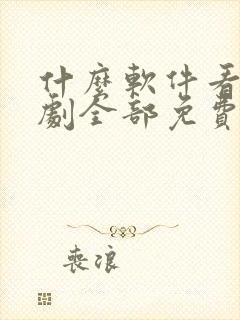 什麼軟件看
劇全部免費
喪浪